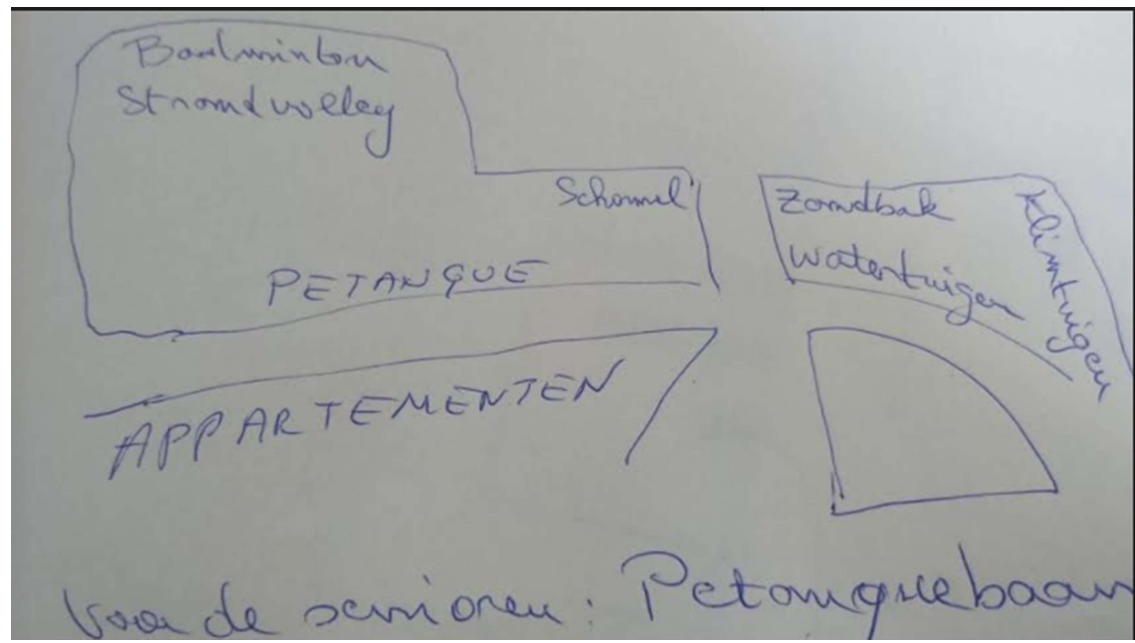 Badminton
Strandvolley
Schommel
PETANQUE
Zandbak
Watertuigen
Klimtuigen
APPARTEMENTEN
Voor de senioren: Petanquebaan